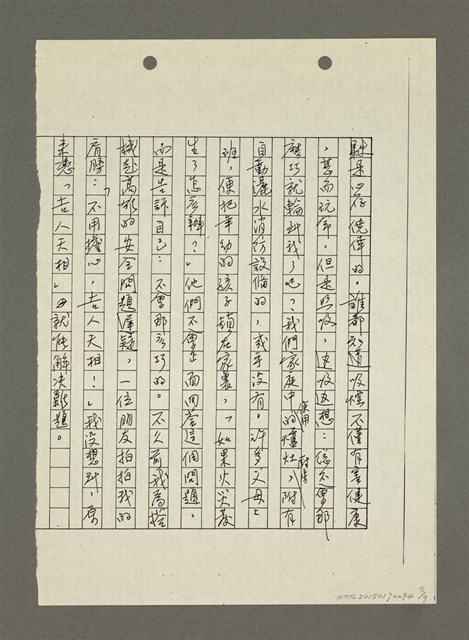 駛是只存僥倖的。誰都知道吸煙不僅有害健康
，甚而玩命，但是照吸，邊吸邊想：總不會那
麼巧就輪到我了吧？我們家庭中使用的爐灶，附有
自動灑水消防設備的，或乎沒有。許多父母上
班，便把年幼的孩子鎖在家裏，「如果火災發
生了怎麼辦？」他們不會正面回答這個問題，
而是告訴自己：不會那麼巧的。不久前我為搭
機赴高雄的安全問題遲疑，一位朋友拍拍我的
肩膀：「不用擔心，吉人天相！」我沒想到，原
來憑「吉人天相」四就能解決難題。
NMTL20150170094 5/9